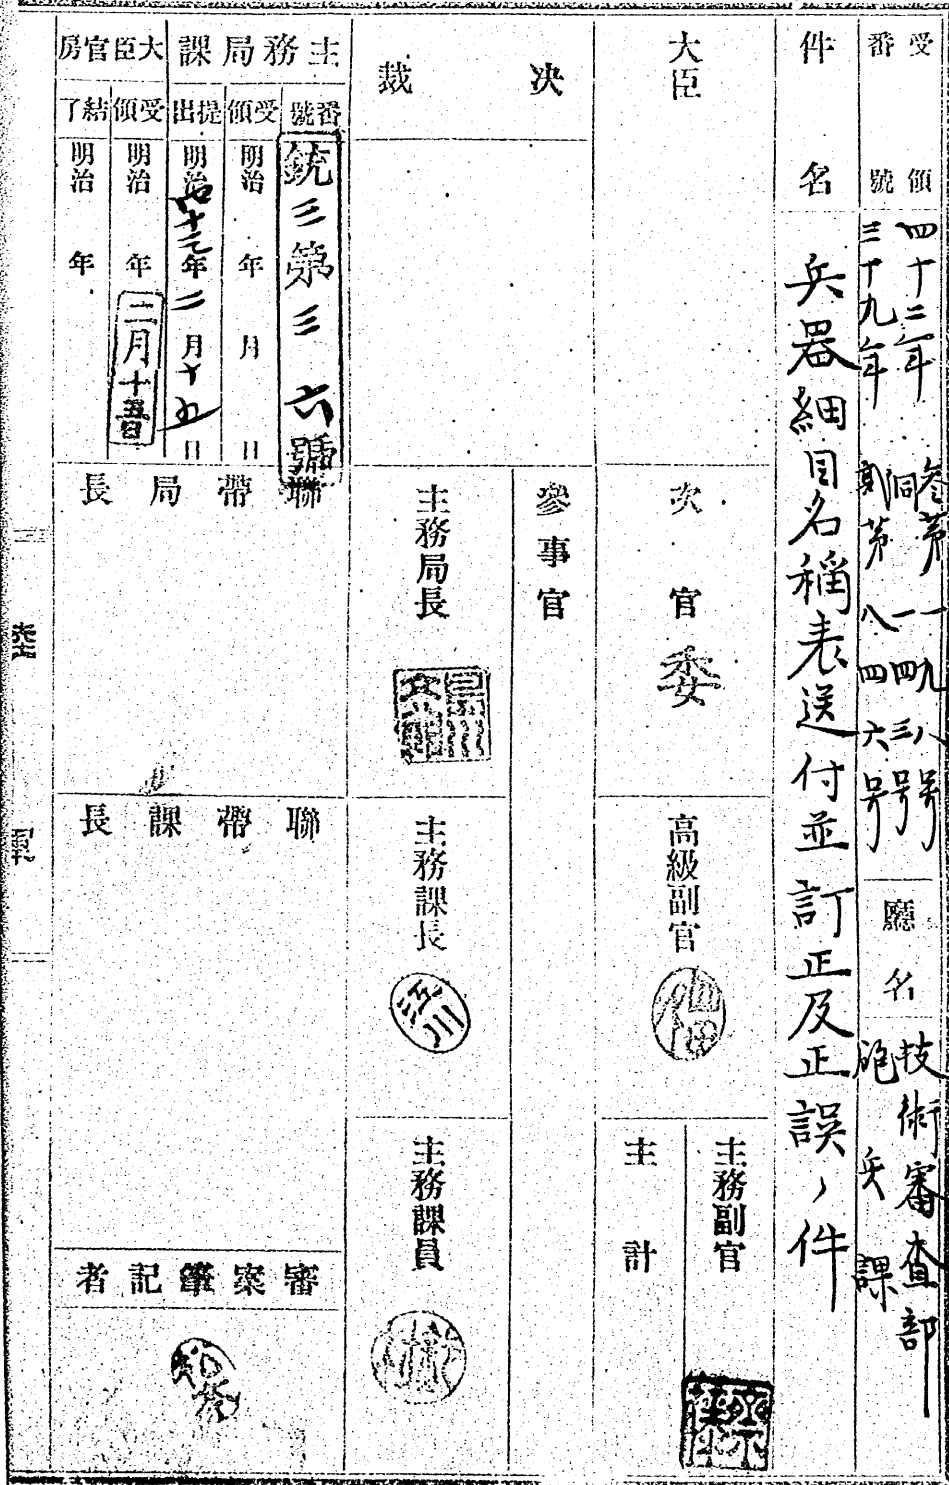 受領番號
四十二年 參第一九八号
同一四三号
三十九年 貳第八四六号
廳名
技術審査部
砲兵課
件名
兵器細目名稱表送付並訂正及正誤ノ件
大臣
次官
委
高級副官
主務副官
主計
決裁
參事官
主務局長
主務課長
主務課員
主務局課
番號
銃三第三六號
受領
明治 年 月 日
提出
明治四十三年二月十五日
大臣官房
受領
明治 年
二月十五日
結了
明治 年
聯帶局長
聯帶課長
審案筆記者
陸
軍